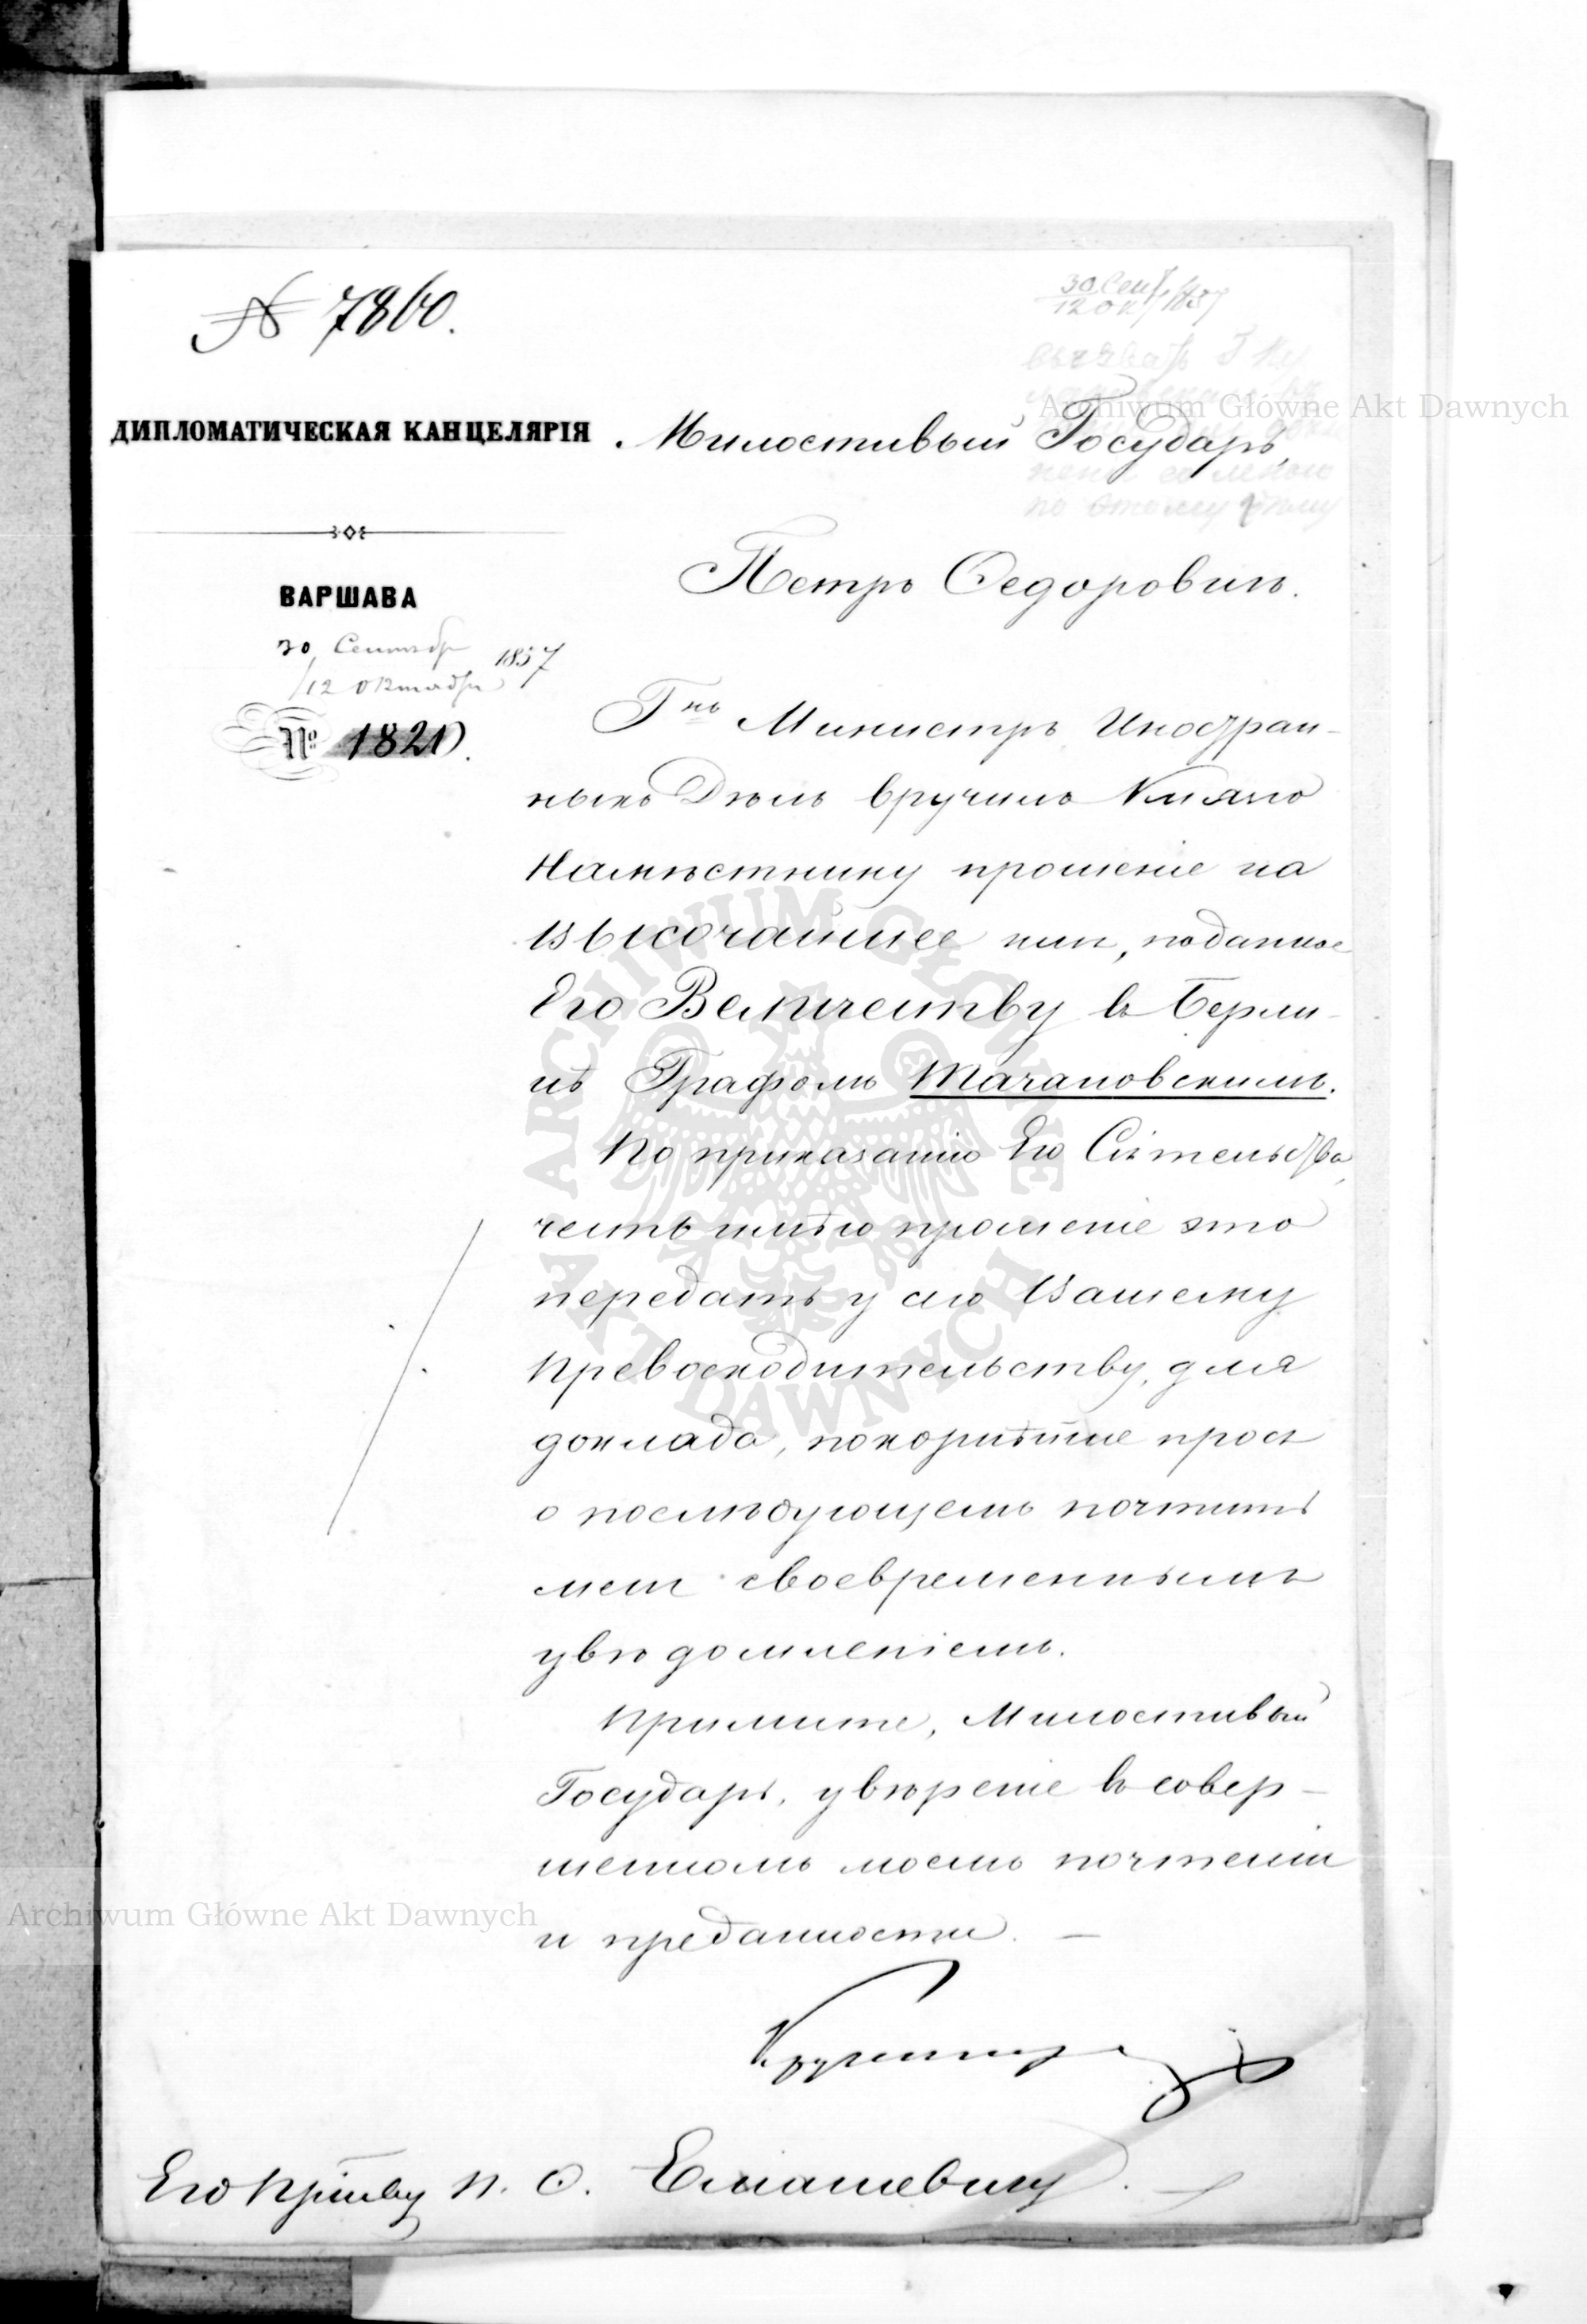 № 7860.
30 Сент. 1857
12 Ок
ДИПЛОМАТИЧЕСКАЯ КАНЦЕЛЯРІЯ
ВАРШАВА
30 Сентябр
/12 Октября 1857
№ 1820.
Милостивый Государь,
Петръ Ѳедоровичъ.
Гнъ Министръ Иностран-
ныхъ Дѣлъ вручилъ Князю
Намѣстнику прошеніе на
Высочайшее имя, поданное
Его Величеству въ Берли-
нѣ Графомъ Мачановскимъ.
По приказанію Его Сіятельства,
честь имѣю прошеніе это
передать у сего Вашему
Превосходительству, для
доклада, покорнѣйше прося
о послѣдующемъ почтить
меня своевременнымъ
увѣдомленіемъ.
Примите, Милостивый
Государь, увѣреніе въ совер-
шенномъ моемъ почтеніи
и преданности. —
Его Прству П. Ѳ. Емашевичу.
Archiwum Główne Akt Dawnych
Archiwum Główne Akt Dawnych
ARCHIWUM GŁÓWNE AKT DAWNYCH